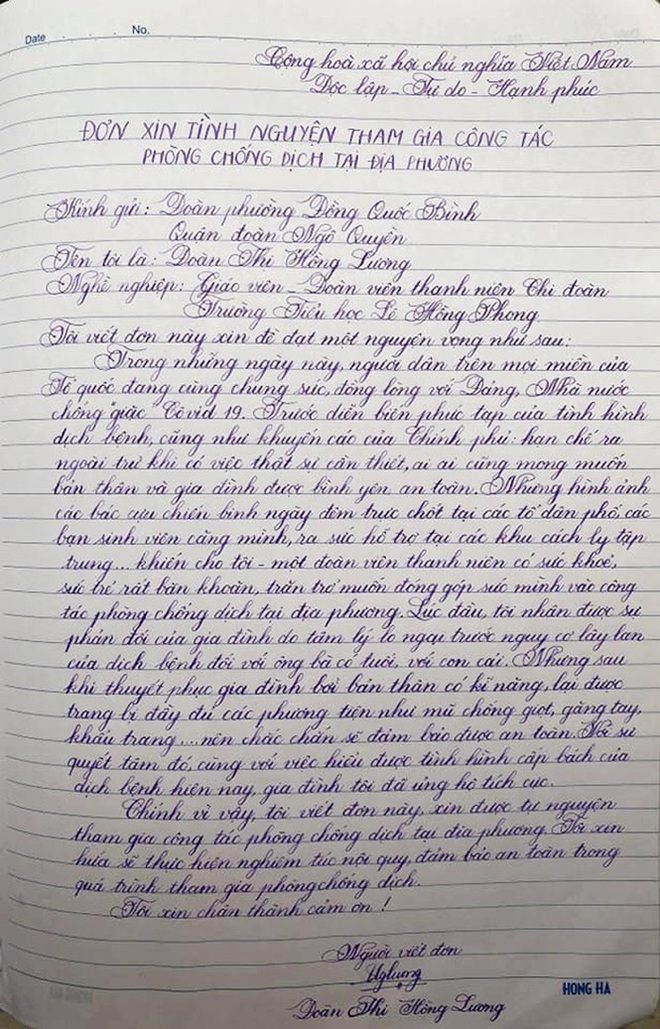 Date No.
Cộng hoà xã hội chủ nghĩa Việt Nam
Độc lập - Tự do - Hạnh phúc
ĐƠN XIN TÌNH NGUYỆN THAM GIA CÔNG TÁC
PHÒNG CHỐNG DỊCH TẠI ĐỊA PHƯƠNG
Kính gửi: Đoàn phường Đồng Quốc Bình
Quận đoàn Ngô Quyền
Tên tôi là: Đoàn Thị Hồng Lương
Nghề nghiệp: Giáo viên - Đoàn viên thanh niên Chi đoàn
Trường Tiểu học Lê Hồng Phong
Tôi viết đơn này xin đề đạt một nguyện vọng như sau:
Trong những ngày này, người dân trên mọi miền của
Tổ quốc đang cùng chung sức, đồng lòng với Đảng, Nhà nước
chống "giặc" Covid 19. Trước diễn biến phức tạp của tình hình
dịch bệnh, cũng như khuyến cáo của Chính phủ: hạn chế ra
ngoài trừ khi có việc thật sự cần thiết, ai ai cũng mong muốn
bản thân và gia đình được bình yên, an toàn. Nhưng hình ảnh
các bác cựu chiến binh ngày đêm trực chốt tại các tổ dân phố, các
bạn sinh viên căng mình, ra sức hỗ trợ tại các khu cách ly tập
trung... khiến cho tôi - một đoàn viên thanh niên có sức khoẻ,
sức trẻ rất băn khoăn, trăn trở muốn đóng góp sức mình vào công
tác phòng chống dịch tại địa phương. Lúc đầu, tôi nhận được sự
phản đối của gia đình do tâm lý lo ngại trước nguy cơ lây lan
của dịch bệnh đối với ông bà có tuổi, với con cái. Nhưng sau
khi thuyết phục gia đình bởi bản thân có kĩ năng, lại được
trang bị đầy đủ các phương tiện như mũ chống giọt, găng tay,
khẩu trang... nên chắc chắn sẽ đảm bảo được an toàn. Với sự
quyết tâm đó, cùng với việc hiểu được tình hình cấp bách của
dịch bệnh hiện nay, gia đình tôi đã ủng hộ tích cực.
Chính vì vậy, tôi viết đơn này, xin được tự nguyện
tham gia công tác phòng chống dịch tại địa phương. Tôi xin
hứa sẽ thực hiện nghiêm túc nội quy, đảm bảo an toàn trong
quá trình tham gia phòng chống dịch.
Tôi xin chân thành cảm ơn!
Người viết đơn
Đoàn Thị Hồng Lương
HONG HA